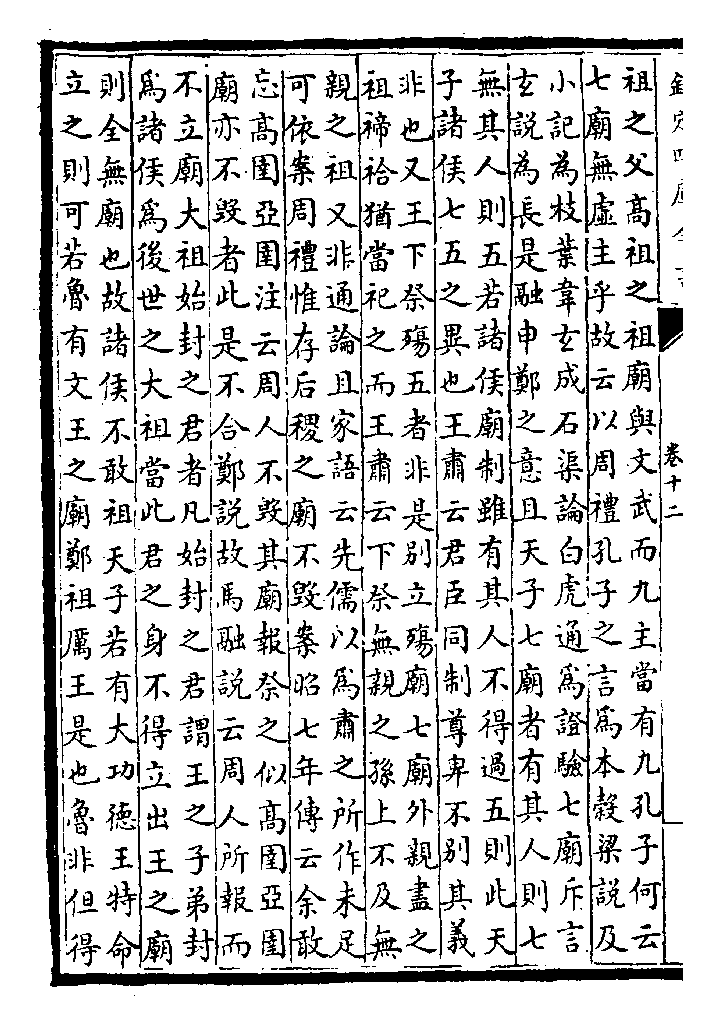 欽定四庫全書
卷十二
祖之父高祖之祖廟與文武而九主當有九孔子何云
七廟無虛主乎故云以周禮孔子之言為本穀梁說及
小記為枝葉韋玄成石渠論白虎通為證驗七廟斥言
玄說為長是融申鄭之意且天子七廟者有其人則七
無其人則五若諸侯廟制雖有其人不得過五則此天
子諸侯七五之異也王肅云君臣同制尊卑不別其義
非也又王下祭殤五者非是別立殤廟七廟外親盡之
祖禘祫猶當祀之而王肅云下祭無親之孫上不及無
親之祖又非通論且家語云先儒以為肅之所作未足
可依案周禮惟存后稷之廟不毀案昭七年傳云余敢
忘高圉亞圉注云周人不毀其廟報祭之似高圉亞圉
廟亦不毀者此是不合鄭說故馬融說云周人所報而
不立廟大祖始封之君者凡始封之君謂王之子弟封
為諸侯為後世之大祖當此君之身不得立出王之廟
則全無廟也故諸侯不敢祖天子若有大功德王特命
立之則可若魯有文王之廟鄭祖厲王是也魯非但得